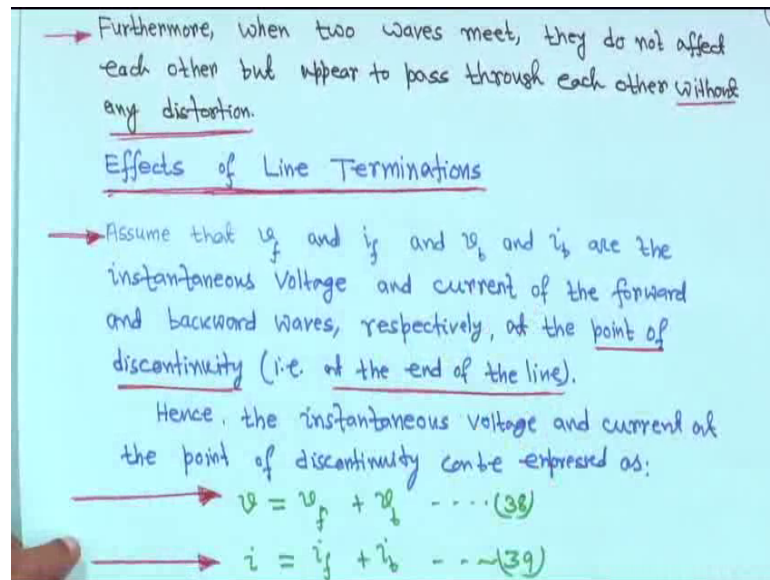 → Furthermore, when two waves meet, they do not affect
each other but appear to pass through each other without
any distortion.
Effects of Line Terminations
→ Assume that v_f and i_f and v_b and i_b are the
instantaneous Voltage and current of the forward
and backward waves, respectively, at the point of
discontinuity (i.e. at the end of the line).
Hence, the instantaneous voltage and current at
the point of discontinuity can be expressed as:
→ v = v_f + v_b ---- (38)
→ i = i_f + i_b ---- (39)